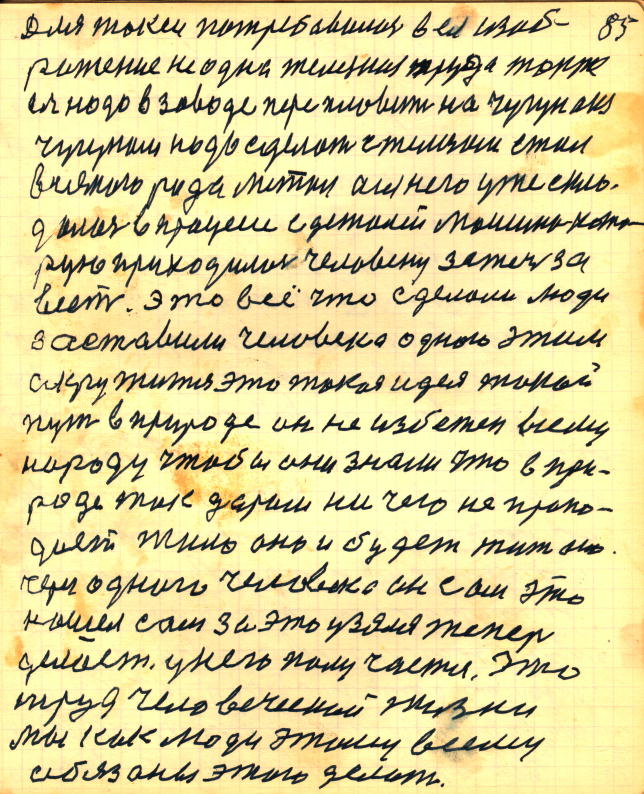 Для такси потребавался в ея изаб- 85
ражение не одна железная труда тоже
ея надо в заводе переплавит на чугун ана
чугунам надо сделат стальнаи стал
всякого рода метал а из него уже скла-
далася в процесе с деталей машина кото-
рую приходилас человеку затем за
вест. Это всё что сделали люди
заставили человека одного этим
акружится это такая идея такой
пут в природе он не избежен всему
народу чтобы они знали что в при-
роде так даром ни чего не пропа-
дает жило оно и будет жит оно.
через одного человека он сам это
нашел сам за это узялся тепер
делает. у него получается. Это
труд человеческой жизни
мы как люди этому всему
обязаны этого делат.